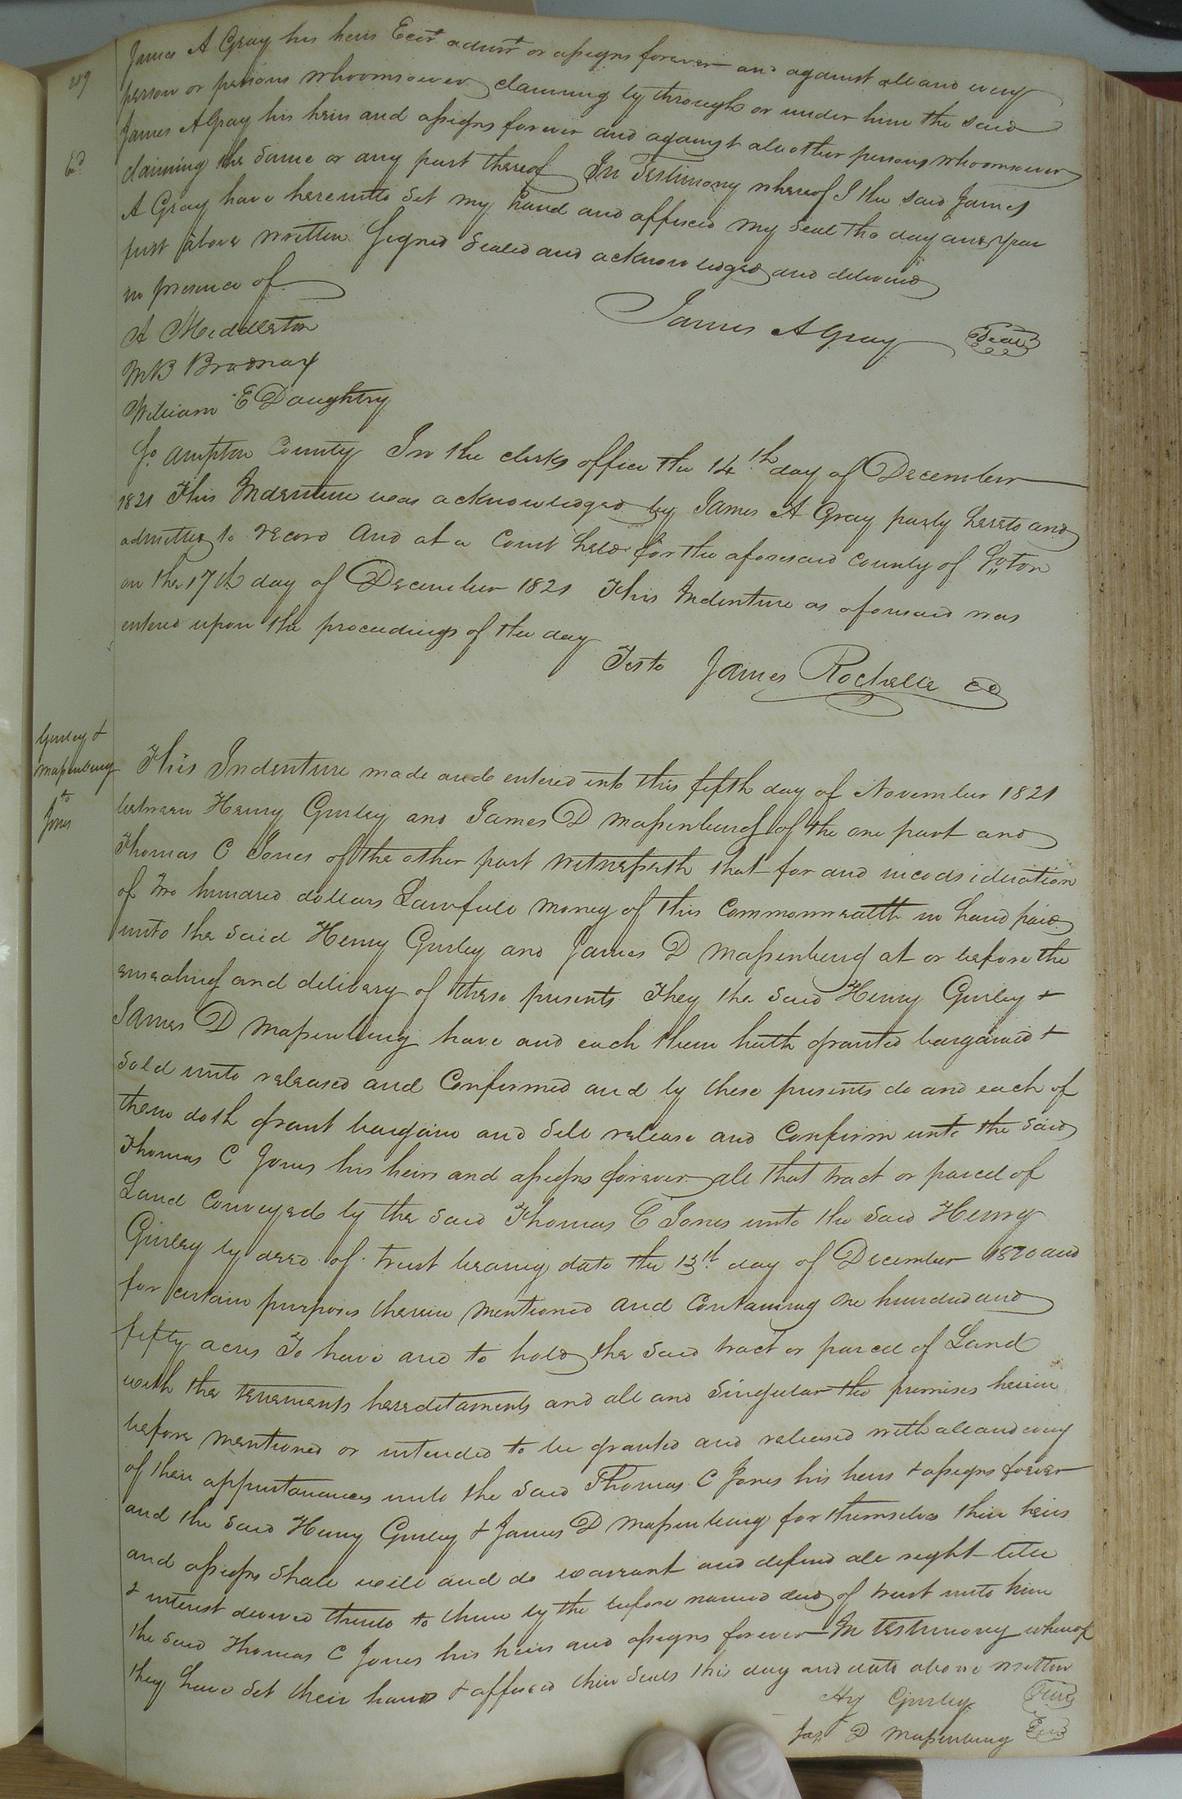 219
James A Gray his heirs Exers admrs or assigns forever and against all and every
person or persons whoomsoever claiming by through or under him the said
James A Gray his heirs and assigns forever and against all other persons whoomsoever
Ed
claiming the Same or any part thereof In Testimony whereof I the said James
A Gray have hereunto Set my hand and affixed my Seal the day and year
first above written Signed Sealed and acknowledged and delivered
in presence of
James A Gray Seal
A Middleton
WB Brodnax
William E Daughtry
So ampton County In the clerks office the 14th day of December
1821 This Indenture was acknowledged by James A Gray party hereto and
admitted to record And at a Court held for the aforesaid County of So,,ton
on the 17th day of December 1821 This Indenture as aforesaid was
entered upon the proceedings of the day
Teste James Rochelle CC
Gurley &
Massenburg
to
Jones
This Indenture made and entered into this fifth day of November 1821
between Henry Gurley and James D Massenburg of the one part and
Thomas C Jones of the other part Witnesseth that for and in consideration
of Two hundred dollars Lawfull money of this Commonwealth in hand paid
unto the said Henry Gurley and James D Massenburg at or before the
ensealing and delivery of these presents They the said Henry Gurley &
James D Massenburg have and each them hath granted bargained &
Sold unto released and Confirmed and by these presents do and each of
them doth grant bargain and Sell release and Confirm unto the said
Thomas C Jones his heirs and assigns forever all that tract or parcel of
Land Conveyed by the said Thomas C Jones unto the said Henry
Gurley by deed of trust bearing date the 13th day of December 1820 and
for certain purposes therein mentioned and Containing One hundred and
fifty acres To have and to hold the said tract or parcel of Land
with the tenements hereditaments and all and Singular the premises herein
before mentioned or intended to be granted and released with all and every
of their appurtenances unto the said Thomas C Jones his heirs & assigns forever
and the said Henry Gurley & James D Massenburg for themselves their heirs
and assigns Shall will and do warrant and defend all right title
& interest derived thereto to them by the before named deed of trust unto him
the said Thomas C Jones his heirs and assigns forever In testimony whereof
they have Set their hands & affixed their Seals this day and date above written
Hy Gurley Seal
Jas D Massenburg Seal